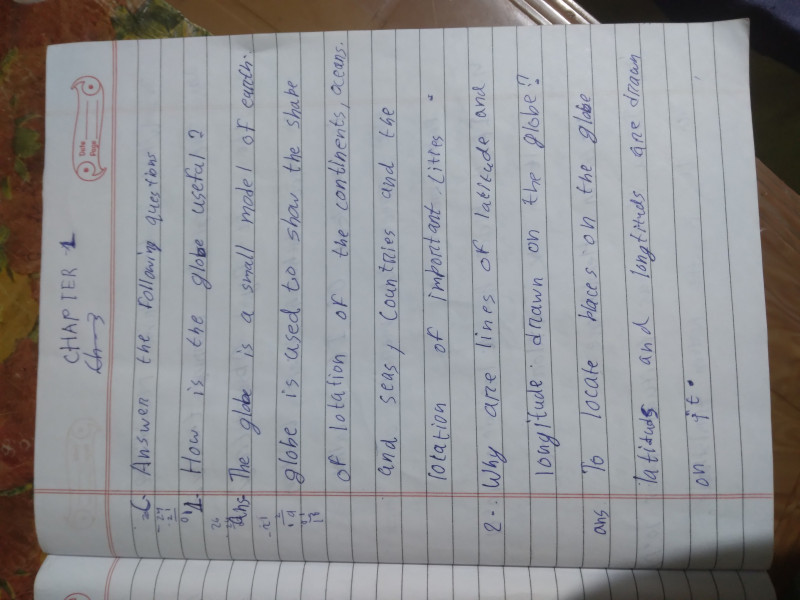 Date
Page
CHAPTER - 1
Ch-3
Answer the following questions
1- How is the globe useful ?
Ans- The globe is a small model of earth.
globe is used to show the shape
of lotation of the continents, oceans.
and seas, countries and the
lotation of important cities .
2-. Why are lines of latitude and
longitude drawn on the globe?
ans To locate places on the globe
latituds and longtituds are drawn
on it.